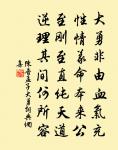 大勇非由血氣充
性情命本來公
至剛至直純天道
逆理其間何所容
陳普孟子大勇